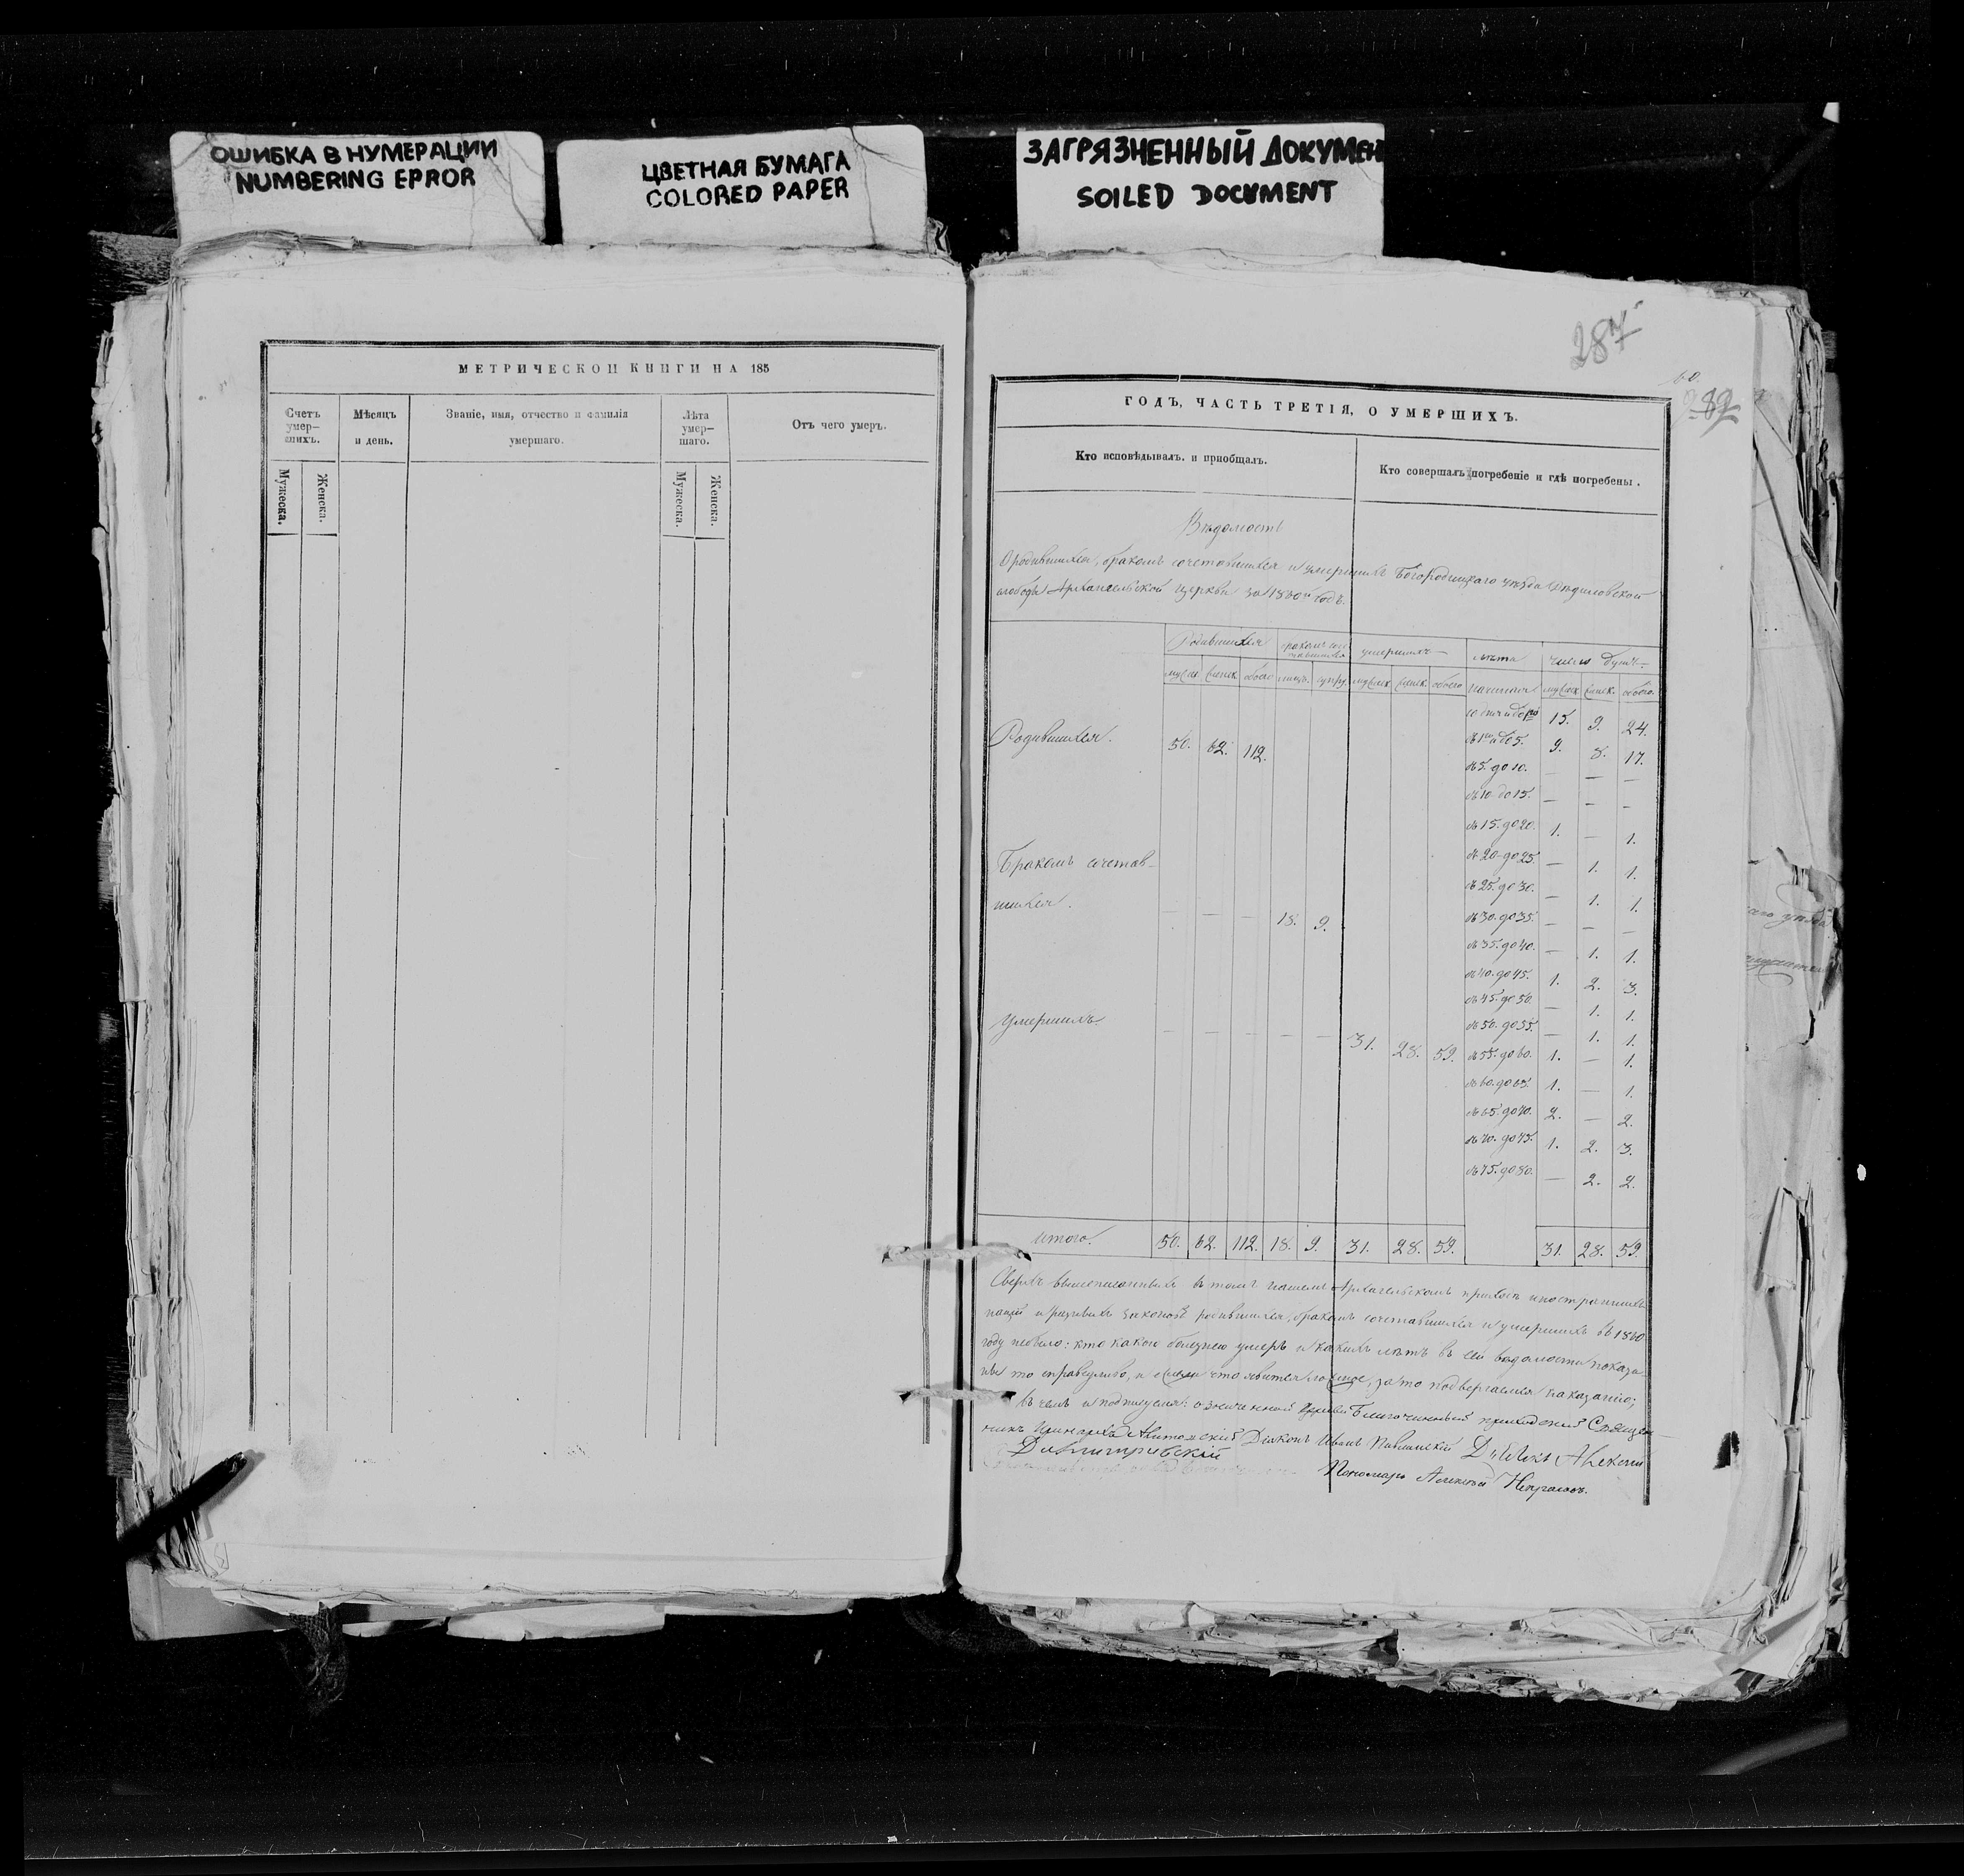 ОШИБКА В НУМЕРАЦИИ
NUMBERING ERROR
ЦВЕТНАЯ БУМАГА
COLORED PAPER
ЗАГРЯЗНЕННЫЙ ДОКУМЕН
SOILED DOCUMENT
МЕТРИЧЕСКОЙ КНИГИ НА 185
Счетъ умер-шихъ.
Мѣсяцъ и день.
Званіе, имя, отчество и фамилія умершаго.
Лѣта умер-шаго.
Отъ чего умеръ.
Мужеска. Женска. Мужеска. Женска.
287
60.
289
ГОДЪ, ЧАСТЬ ТРЕТІЯ, О УМЕРШИХЪ.
Кто исповѣдывалъ. и приобщалъ.
Кто совершалъ погребеніе и гдѣ погребены.
Вѣдомость
О родившихся, бракомъ сочетавшихся и умершихъ Богородицкаго уѣзда
слободы Архангельской церкви за 1860й годъ.
Родившихся бракомъ соче-тавшихся умершихъ лѣта число душъ
мужск. женск. обоего лицъ. супру. мужеск. женск. обоего начиная мужеск. женск. обоего.
до 1го 15. 9. 24.
Родившихся. 50. 62. 112. съ 1го до 5. 9. 8. 17.
съ 5. до 10. — — —
съ 10. до 15. — — —
съ 15. до 20. 1. — 1.
съ 20. до 25. — 1. 1.
Бракомъ сочетав-
съ 25. до 30. — 1. 1.
шихся. — — — 18. 9. съ 30. до 35. — — —
съ 35. до 40. — 1. 1.
съ 40. до 45. 1. 2. 3.
съ 45. до 50. — 1. 1.
съ 50. до 55. — 1. 1.
умершихъ. — — — — — 31. 28. 59. съ 55. до 60. 1. — 1.
съ 60. до 65. 1. — 1.
съ 65. до 70. 2. — 2.
съ 70. до 75. 1. 2. 3.
съ 75. до 80. — 2. 2.
Итого. 50. 62. 112. 18. 9. 31. 28. 59. 31. 28. 59.
Сверхъ вышеписанныхъ въ томъ нашемъ Архангельскомъ приходѣ иностранныхъ
націй и разныхъ законовъ родившихся, бракомъ сочетавшихся и умершихъ въ 1860
году небыло: кто какою болезнею умеръ и какихъ лѣтъ въ сей вѣдомости показа-
ны то справедливо, а если что явится ложное, за то подвергаемся наказанію;
въ чемъ и подписуемся: означенной церкви Священ-
никъ Діаконъ Иванъ Павлинскій Дьячекъ Алексѣй
Димитревскій
Пономарь Алексѣй Некрасовъ.